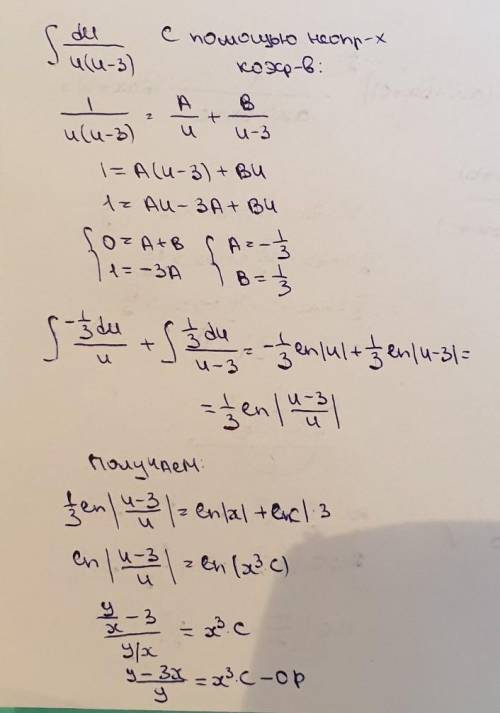 ∫ du / u(u-3) с помощью неопр-х
коэф-в:
1 / u(u-3) = A/u + B/u-3
1 = A(u-3) + Bu
1 = Au - 3A + Bu
{ 0 = A+B { A = -1/3
{ 1 = -3A { B = 1/3
∫ -1/3 du / u + ∫ 1/3 du / u-3 = -1/3 ln|u| + 1/3 ln|u-3| =
= 1/3 ln| u-3 / u |
Получаем:
1/3 ln| u-3 / u | = ln|x| + lnc |·3
ln| u-3 / u | = ln(x³·C)
y/x - 3 / y/x = x³·C
y-3x / y = x³·C - ОР